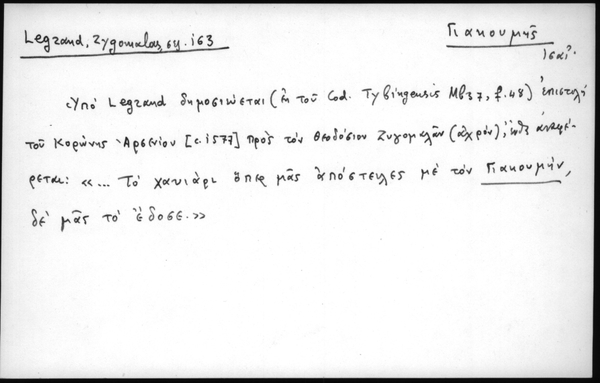 Legrand, Zygomalas, ση. 163
Γιακουμῆς
ις΄ αἰ.
Ὑπό Legrand δημοσιεύεται (ἐκ τοῦ Cod. Tybingensis Mb 37, f. 48) ἐπιστολή
τοῦ Κορώνης Ἀρσενίου [c. 1577] πρὸς τόν Θεοδόσιον Ζυγομαλᾶν (ἄχρον), ἔνθα ἀναφέ-
ρεται: «... Τό χαυιάρι ὅπερ μᾶς ἀπόστειλες μέ τόν Γιακουμήν,
δέ μᾶς τό ἔδοσε.»